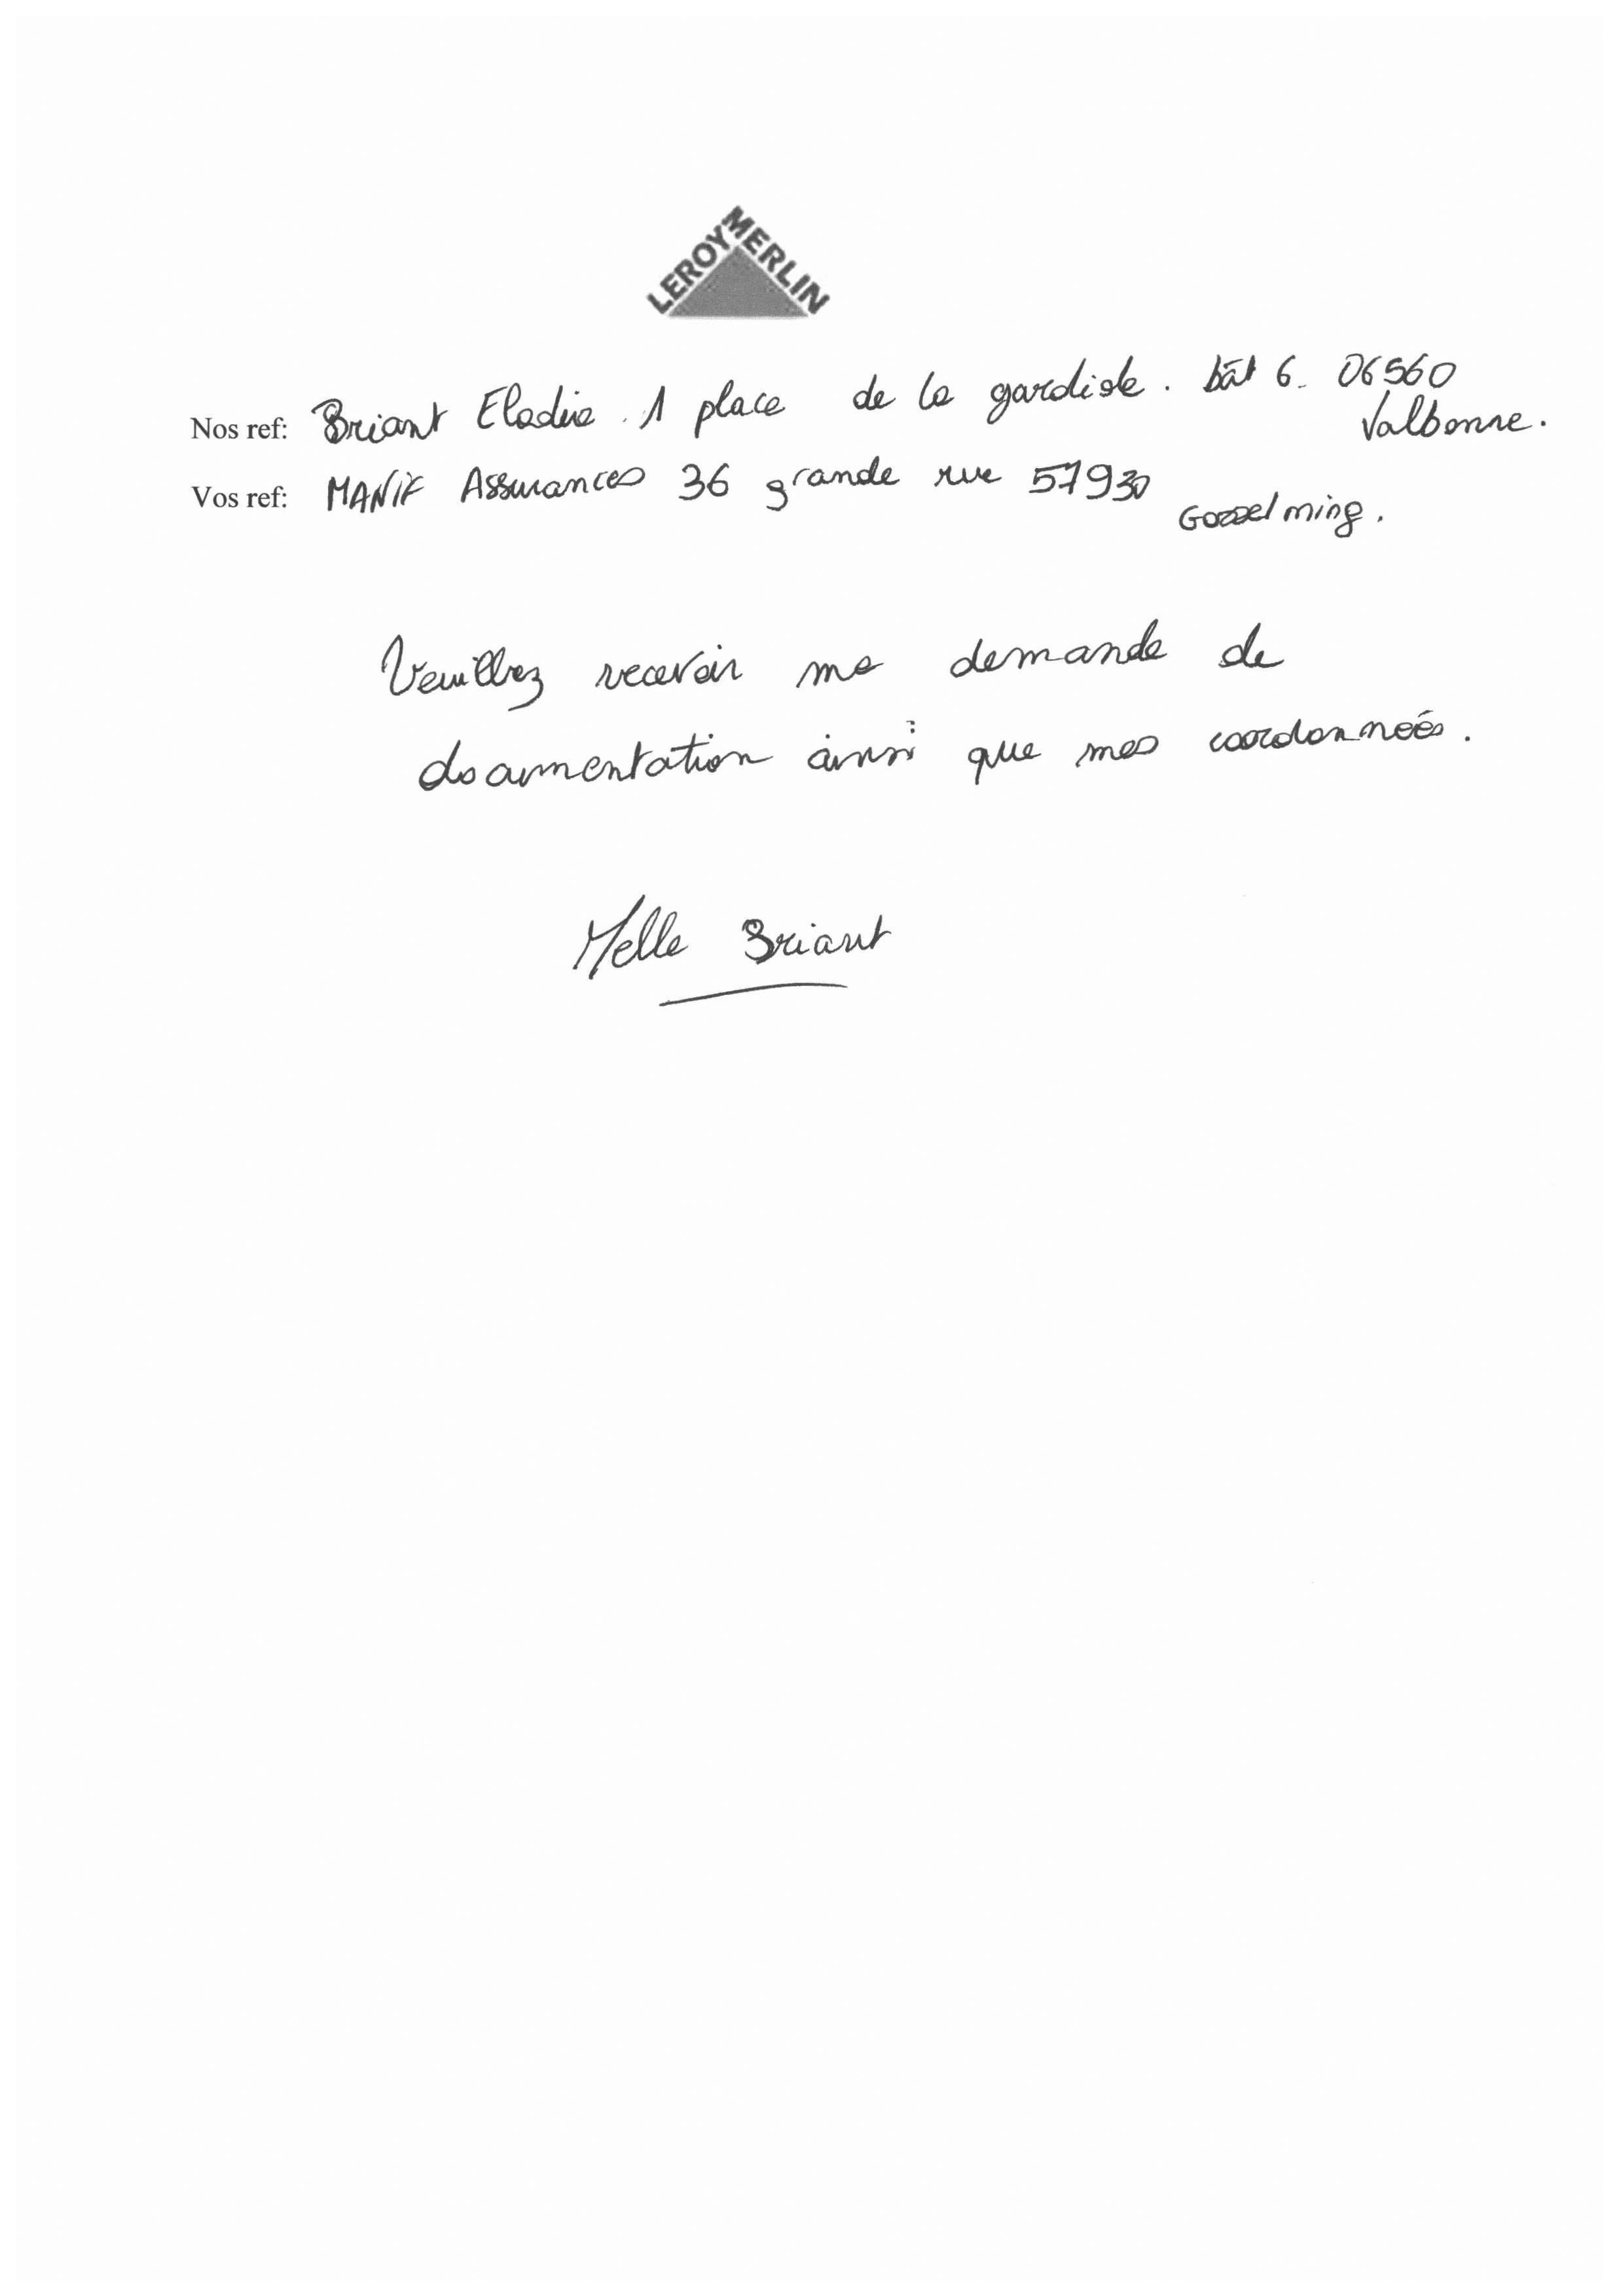 LEROY MERLIN
Nos ref: Briant Elodie. 1 place de la gardiole. bât 6. 06560
Valbonne.
Vos ref: MANIF Assurances 36 grande rue 57930
Gosselming.
Veuillez recevoir ma demande de
documentation ainsi que mes coordonnées.
Melle Briant